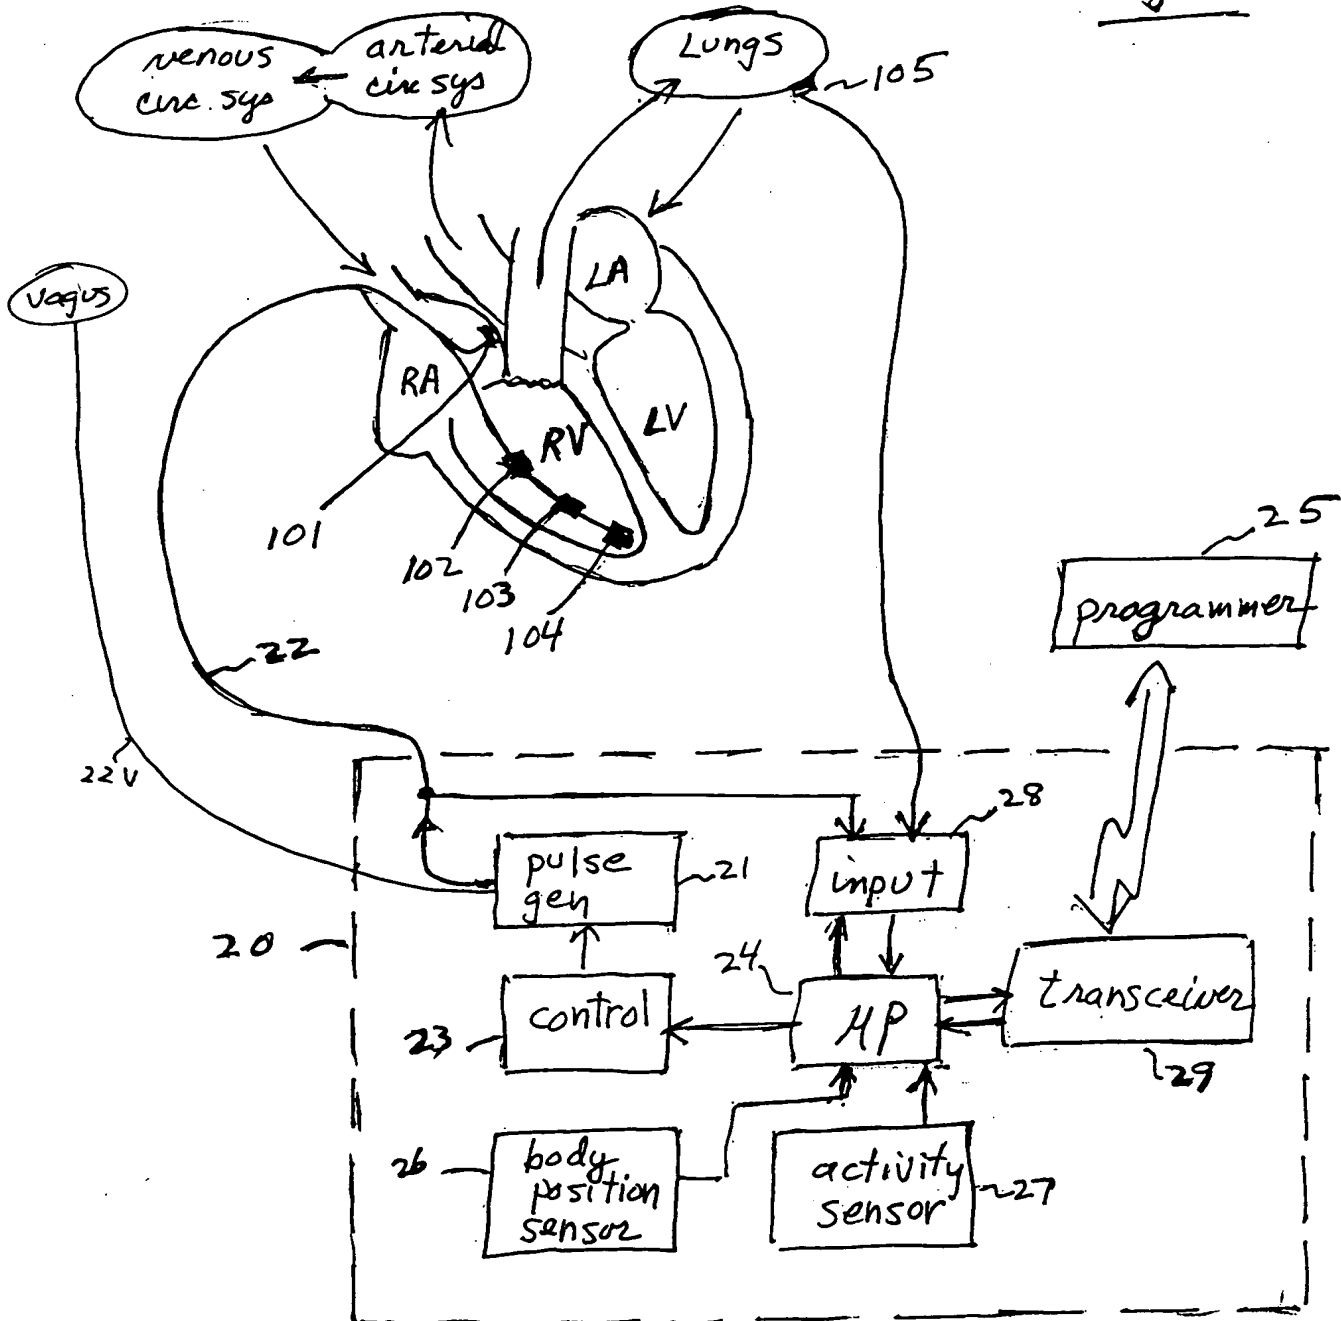 venous
circ. sys
arterial
circ sys
Lungs
105
vagus
LA
RA
RV
LV
101
102
103
104
25
programmer
22
22V
28
pulse
gen
21
input
20
24
control
23
μP
transceiver
29
26
body
position
sensor
activity
sensor
27